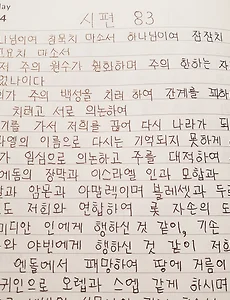 ay
4
시편 83
나님이여 침묵치 마소서 하나님이여 잠잠치
고요치 마소서
저 주의 원수가 훤화하며 주의 한하는 자
었나이다
희가 주의 백성을 치려 하여 간계를 꾀하
치려고 서로 의논하여
기를 가서 저희를 끊어 다시 나라가 되
라엘의 이름으로 다시는 기억되지 못하게
가 일심으로 의논하고 주를 대적하여
에돔의 장막과 이스마엘 인과 모압과
발과 암몬과 아말렉이며 블레셋과 두로
도 저희와 연합하여 롯 자손의 도
미디안 인에게 행하신 것 같이, 기손
와 야빈에게 행하신 것 같이 저희
엔돌에서 패망하여 땅에 거름이
귀인으로 오렙과 스엡 같게 하시며